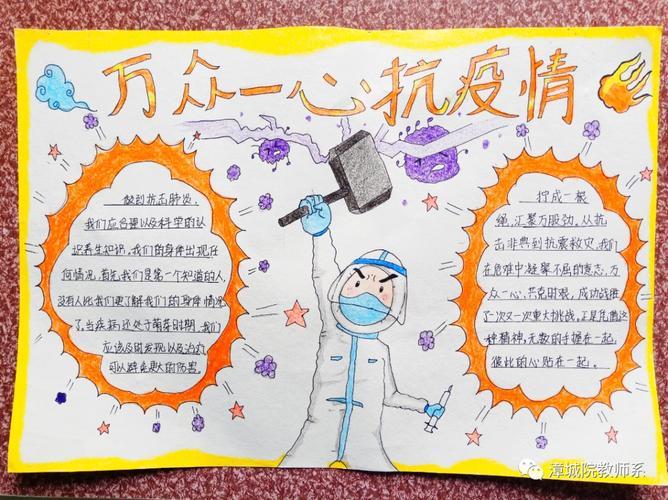 万众一心抗疫情
做到抗击肺炎，
我们应合理以及科学的认
识养生知识，我们的身体出现任
何情况，首先，我们是第一个知道的人，
没有人比我们更了解我们的身体情况
了，当疾病还处于萌芽时期，我们
应该及时发现以及治疗
可以避免更大的伤害。
拧成一根
绳，汇聚万股劲，从抗
击非典到抗震救灾，我们
在危难中凝聚不屈的意志，万
众一心，共克时艰，成功战胜
了一次又一次重大挑战，正是凭借这
种精神，无数的手握在一起，
彼此的心贴在一起。
漳城院教师系